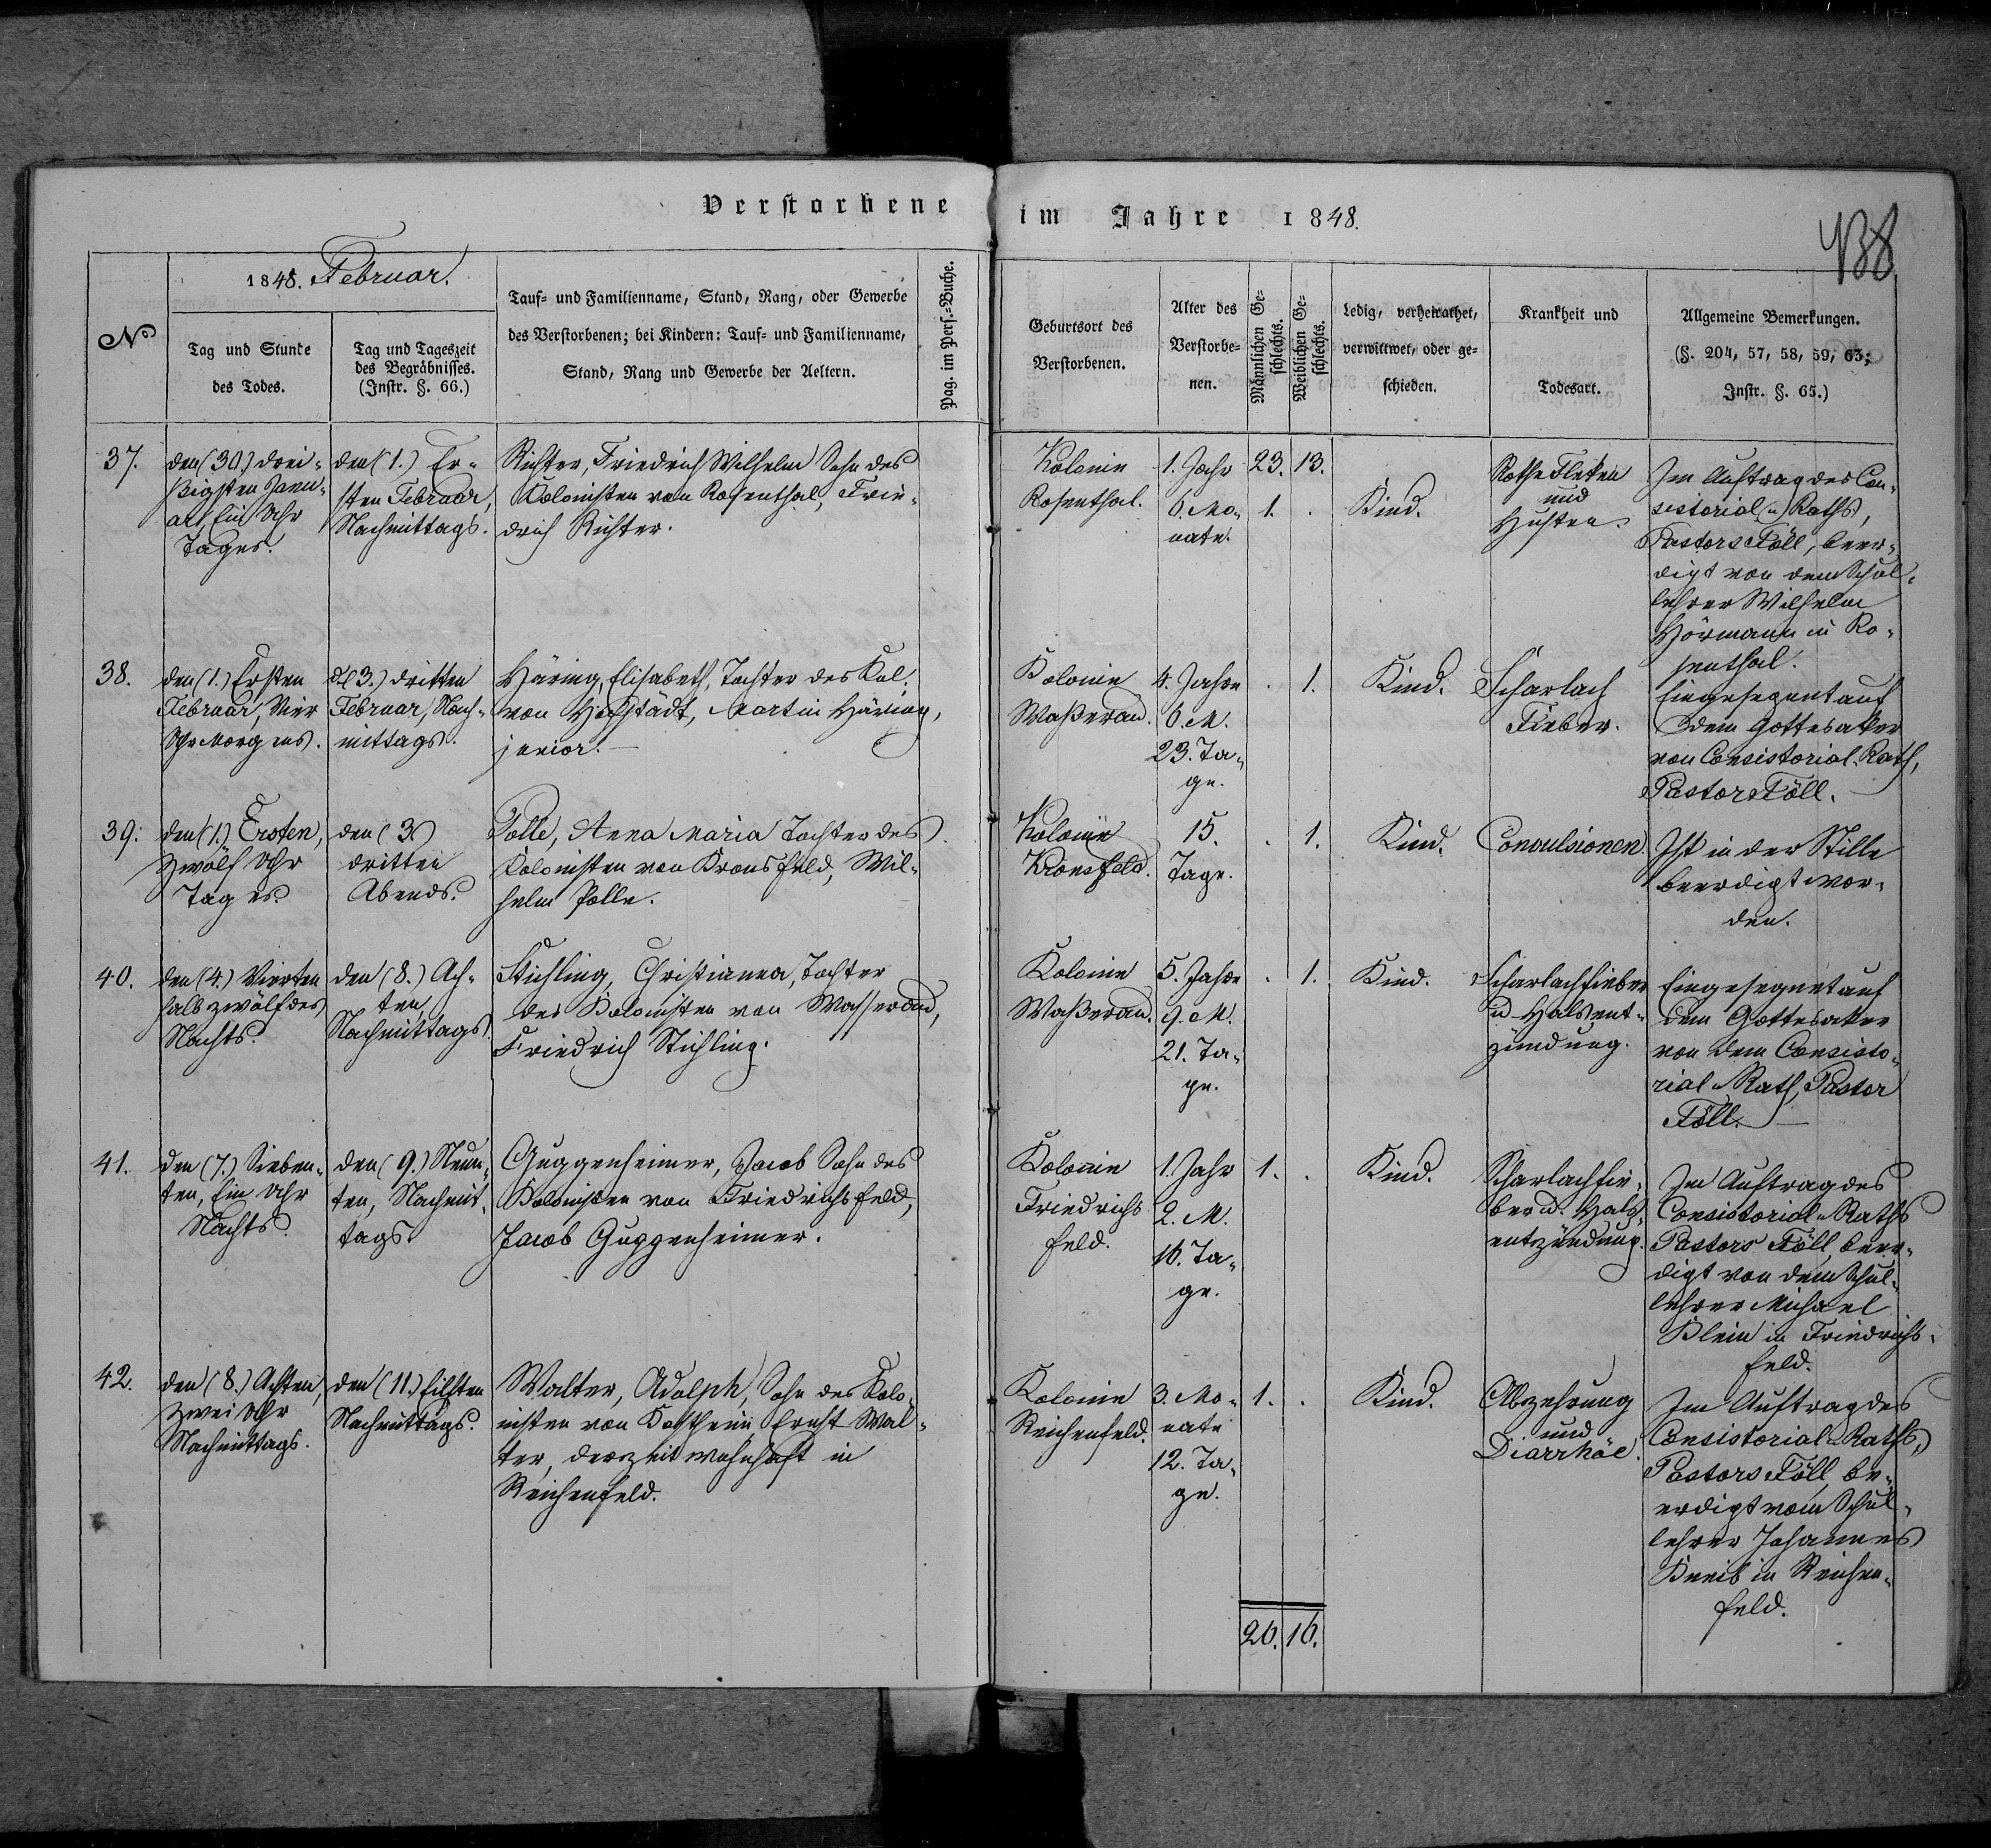 Verstorbene im Jahre 1848.
438
№
1848. Februar.
Tag und Stunde
des Todes.
Tag und Tageszeit
des Begräbnisses.
(Instr. §. 66.)
Tauf- und Familienname, Stand, Rang, oder Gewerbe
des Verstorbenen; bei Kindern: Tauf- und Familienname,
Stand, Rang und Gewerbe der Aeltern.
Pag. im Pers.-Buche.
Geburtsort des
Verstorbenen.
Alter des
Verstorbe-
nen.
Männlichen Ge-
schlechts.
Weiblichen Ge-
schlechts.
Ledig, verheirathet,
verwittwet, oder ge-
schieden.
Krankheit und
Todesart.
Allgemeine Bemerkungen.
(§. 204, 57, 58, 59, 63;
Instr. §. 65.)
37.
den (30.) drei-
ßigsten Janu-
ar, Ein Uhr
Tages.
den (1.) Er-
sten Februar,
Nachmittags.
Richter, Friedrich Wilhelm Sohn des
Kolonisten von Rosenthal, Frie-
drich Richter.
Kolonie
Rosenthal.
1. Jahr
6. Mo-
nate.
23. 13.
1. .
Kind.
Rothe Fleken
und
Husten.
Im Auftrag des Con-
sistorial-Raths,
Pastors Föll, beer-
digt von dem Schul-
lehrer Wilhelm
Hörmann in Ro-
senthal.
38.
den (1.) Ersten
Februar, Vier
Uhr Morgens.
d. (3.) dritten
Februar, Nach-
mittags.
Häring, Elisabeth, Tochter des Kol.
von Hofstädt, Martin Häring,
junior.
Kolonie
Waßerau.
4. Jahre
6. M.
23. Ta-
ge.
. 1.
Kind.
Scharlach
Fieber.
Eingesegnet auf
dem Gottesaker
von Consistorial-Rath,
Pastor Föll.
39.
den (1.) Ersten,
Zwölf Uhr
Tages.
den (3.)
dritten
Abends.
Polle, Anna Maria Tochter des
Kolonisten von Kronsfeld, Wil-
helm Polle.
Kolonie
Kronsfeld.
15.
Tage.
. 1.
Kind.
Convulsionen
Ist in der Stille
beerdigt wor-
den.
40.
den (4.) Vierten
halb zwölf des
Nachts.
den (8.) Ach-
ten,
Nachmittags.
Stichling, Christianna, Tochter
des Kolonisten von Wasserau,
Friedrich Stichling.
Kolonie
Waßerau.
5. Jahre
9. M.
21. Ta-
ge.
. 1.
Kind.
Scharlachfieber
u Halsent-
zündung.
Eingesegnet auf
dem Gottesaker
von dem Consisto-
rial-Rath, Pastor
Föll.
41.
den (7.) Sieben-
ten, Ein Uhr
Nachts.
den (9.) Neun-
ten, Nachmit-
tags.
Guggenheimer, Jacob Sohn des
Kolonisten von Friedrichsfeld,
Jacob Guggenheimer.
Kolonie
Friedrichs
feld.
1. Jahr
2. M.
16. Ta-
ge.
1. .
Kind.
Scharlachfie-
ber u. Hals-
entzündung.
Im Auftrag des
Consistorial-Raths
Pastors Föll, beer-
digt von dem Schul-
lehrer Michael
Klein in Friedrichs-
feld.
42.
den (8.) Achten,
Zwei Uhr
Nachmittags.
den (11.) Eilften
Nachmittags.
Walter, Adolph, Sohn des Kolo-
nisten von Kostheim, Ernst Wal-
ter, derzeit wohnhaft in
Reichenfeld.
Kolonie
Reichenfeld.
3. Mo-
nate
12. Ta-
ge.
1. .
Kind.
Abzehrung
und
Diarrhöe.
Im Auftrag des
Consistorial-Raths,
Pastors Föll, be-
erdigt vom Schul-
lehrer Johannes
Kneib in Reichen-
feld.
26. 16.